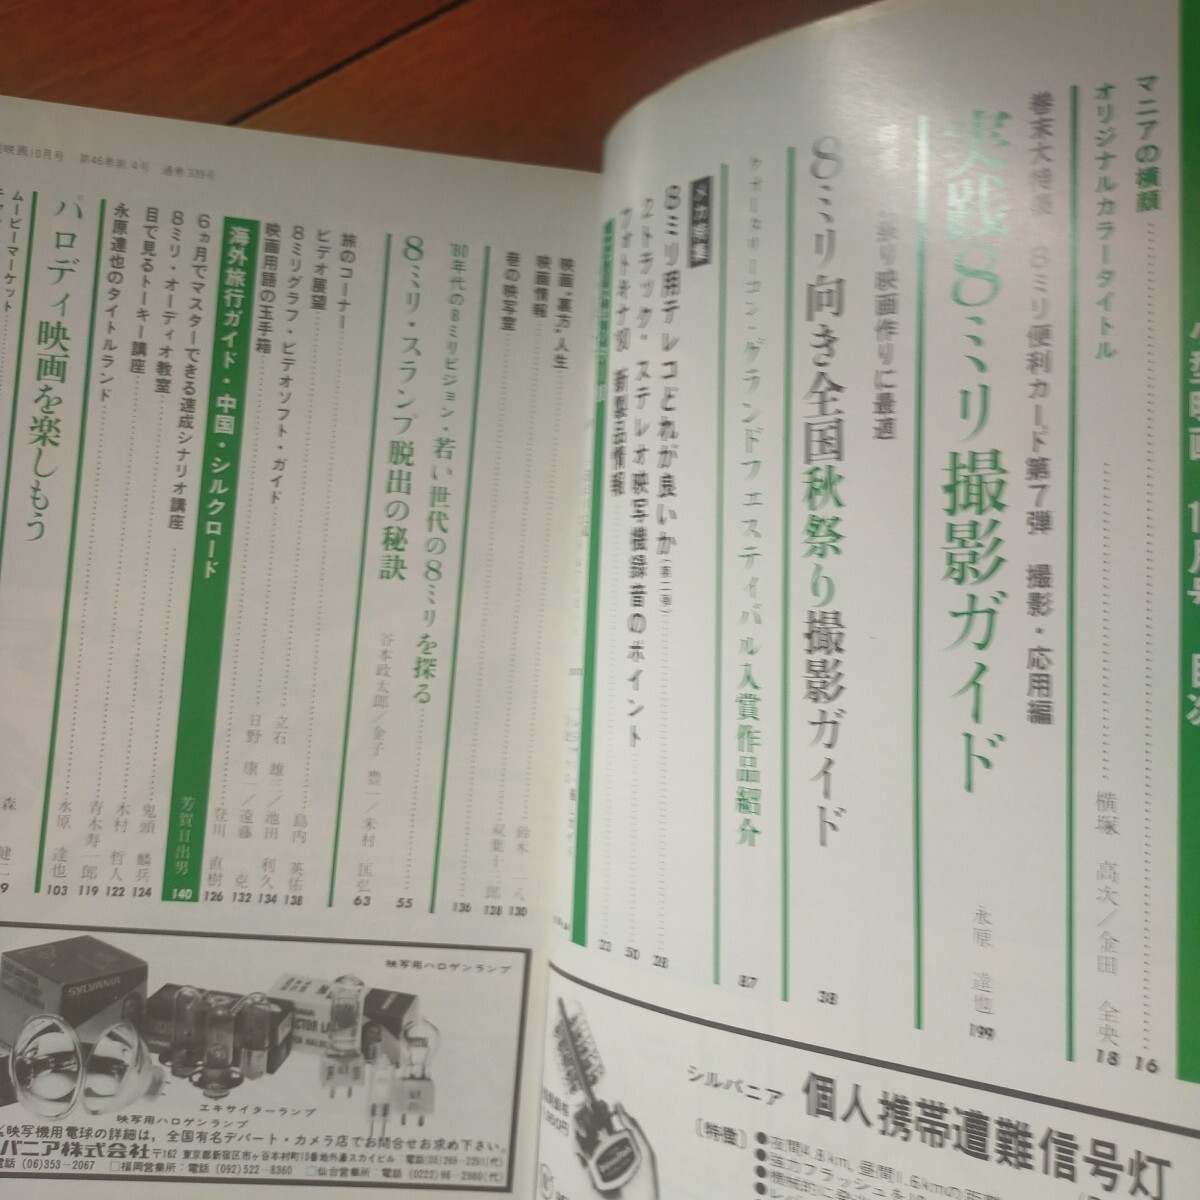 小型映画 10月号 目次
マニアの横顔 16
オリジナルカラータイトル 横塚 高次／金田 全央 18
巻末大特集 8ミリ便利カード第7弾 撮影・応用編
実践8ミリ撮影ガイド 永原 達也 199
祭り映画作りに最適
8ミリ向き全国秋祭り撮影ガイド 38
グランドフェスティバル入賞作品紹介 87
メカ特集
8ミリ用テレコどれが良いか(第二弾) 28
2トラック・ステレオ映写機録音のポイント 50
フォトキナ'80 新製品情報 22
映画・裏方・人生 鈴木 130
映画情報 双葉十三郎 138
巷の映写室 136
'80年代の8ミリビジョン・若い世代の8ミリを探る 55
8ミリ・スランプ脱出の秘訣 谷本政太郎／金子 豊一／米村 匡弘 63
旅のコーナー
ビデオ展望 島内 英佑 138
8ミリグラフ・ビデオソフト・ガイド 立石 雄二／池田 利久 134
映画用語の玉手箱 日野 康一／遠藤 克 132
海外旅行ガイド・中国・シルクロード 芳賀日出男 140
6ヵ月でマスターできる速成シナリオ講座 登川 直樹 126
8ミリ・オーディオ教室 鬼頭 麟兵 124
目で見るトーキー講座 木村 哲人 122
永原達也のタイトルランド 青木寿一郎 119
パロディ映画を楽しもう 永原 達也 103
ムービーマーケット
映画10月号 第46巻第4号 通巻339号
SYLVANIA
映写用ハロゲンランプ
エキサイターランプ
映写用ハロゲンランプ
映写機用電球の詳細は、全国有名デパート・カメラ店でお問合せお求め下さい。
バニア株式会社 〒162 東京都新宿区市ヶ谷本村町15番地外濠スカイビル・電話(03)269-2291(代)
電話 (06)353-2067 □福岡営業所：電話 (092)522-8360 □仙台営業所：電話 (0222)66-2960(代)
シルバニア 個人携帯遭難信号灯
〔特徴〕
●夜間4.8km, 昼間1.6kmの
●強力フラッシュを